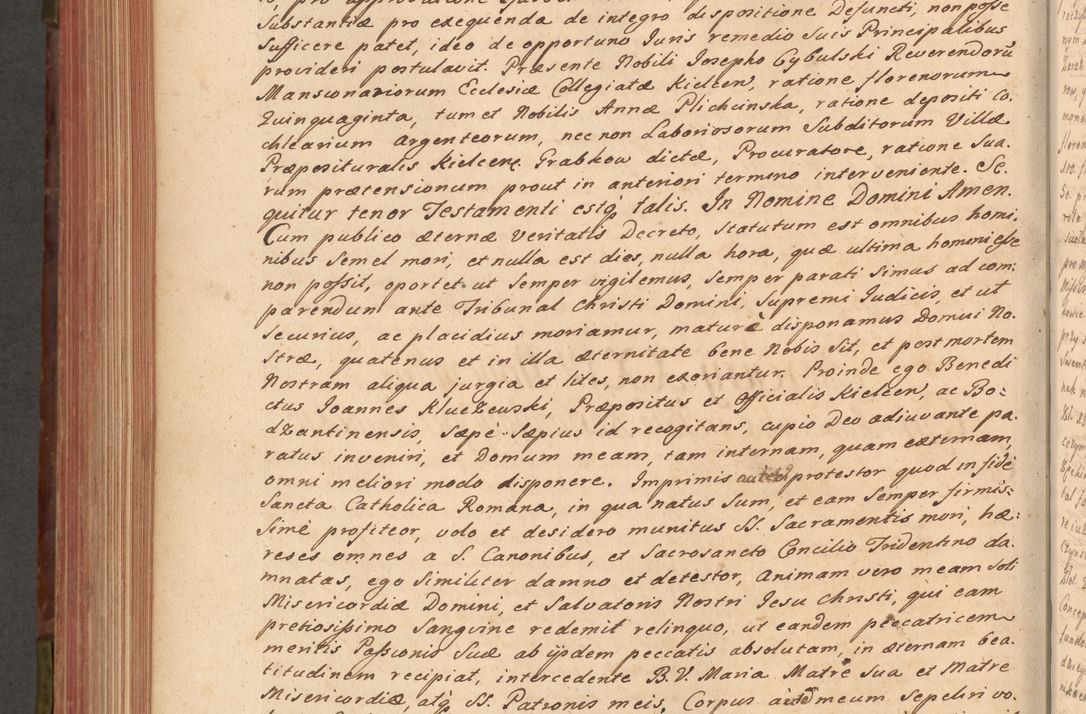 Substantiæ pro exequenda de integro dispositione Defuncti, non posse
sufficere patet, ideo de opportuno Iuris remedio suis Principalibus
provideri postulavit. Præsente Nobili Iosepho Cybulski Reverendorū
Mansionariorum Ecclesiæ Collegiatæ Kielcen, ratione florenorum
Quinquaginta, tum et Nobilis Annæ Plichcinska, ratione depositi Co.
chlearium Argenteorum, nec non Laboriosorum Subditorum Villæ
Præposituralis Kielcens Grabkow dictæ, Procuratore, ratione sua.
rum prætensionum prout in anteriori termino interveniente. Se.
quitur tenor Testamenti estq talis. In Nomine Domini Amen.
Cum publico æternæ Veritatis Decreto, statutum est omnibus homi,
nibus semel mori, et nulla est dies, nulla hora, quæ ultima homini esse
non possit, oportet ut semper vigilemus, semper parati simus ad com:
parendum ante Tribunal Christi Domini, supremi Iudicis, et ut
securius, ac placidius moriamur, maturè disponamus Domui No.
stræ, quatenus et in illa æternitate bene Nobis sit, et post mortem
Nostram aliqua jurgia et lites, non exoriantur. Proinde ego Benedi
ctus Ioannes Kluczewski, Præpositus et Officialis Kielcen, ac Bo:
dzantinensis, sæpè sæpius id recogitans, cupio Deo adiuvante pa.
ratus inveniri, et Domum meam, tam internam, quam externam,
omni meliori modo disponere. Imprimis protestor quod in fidè
Sancta Catholica Romana, in qua natus sum, et eam semper firmis:
simè profiteor, volo et desidero munitus SS. Sacramentis mori, hæ:
reses omnes a S. Canonibus, et Sacrosancto Concilio Tridentino da.
mnatas, ego similiter damno et detestor, Animam vero meam soli
Misericordiæ Domini, et Salvatoris Nostri Iesu Christi, qui eam
pretiosissimo Sanguine redemit relinquo, ut eandem peccatricem
meritis Passionis Suæ ab ijsdem peccatis absolutam, in æternam bea.
titudinem recipiat, intercedente B. V. Maria Matre Sua et Matre
Misericordiæ, atq SS. Patronis meis, Corpus meum sepeliri vo.